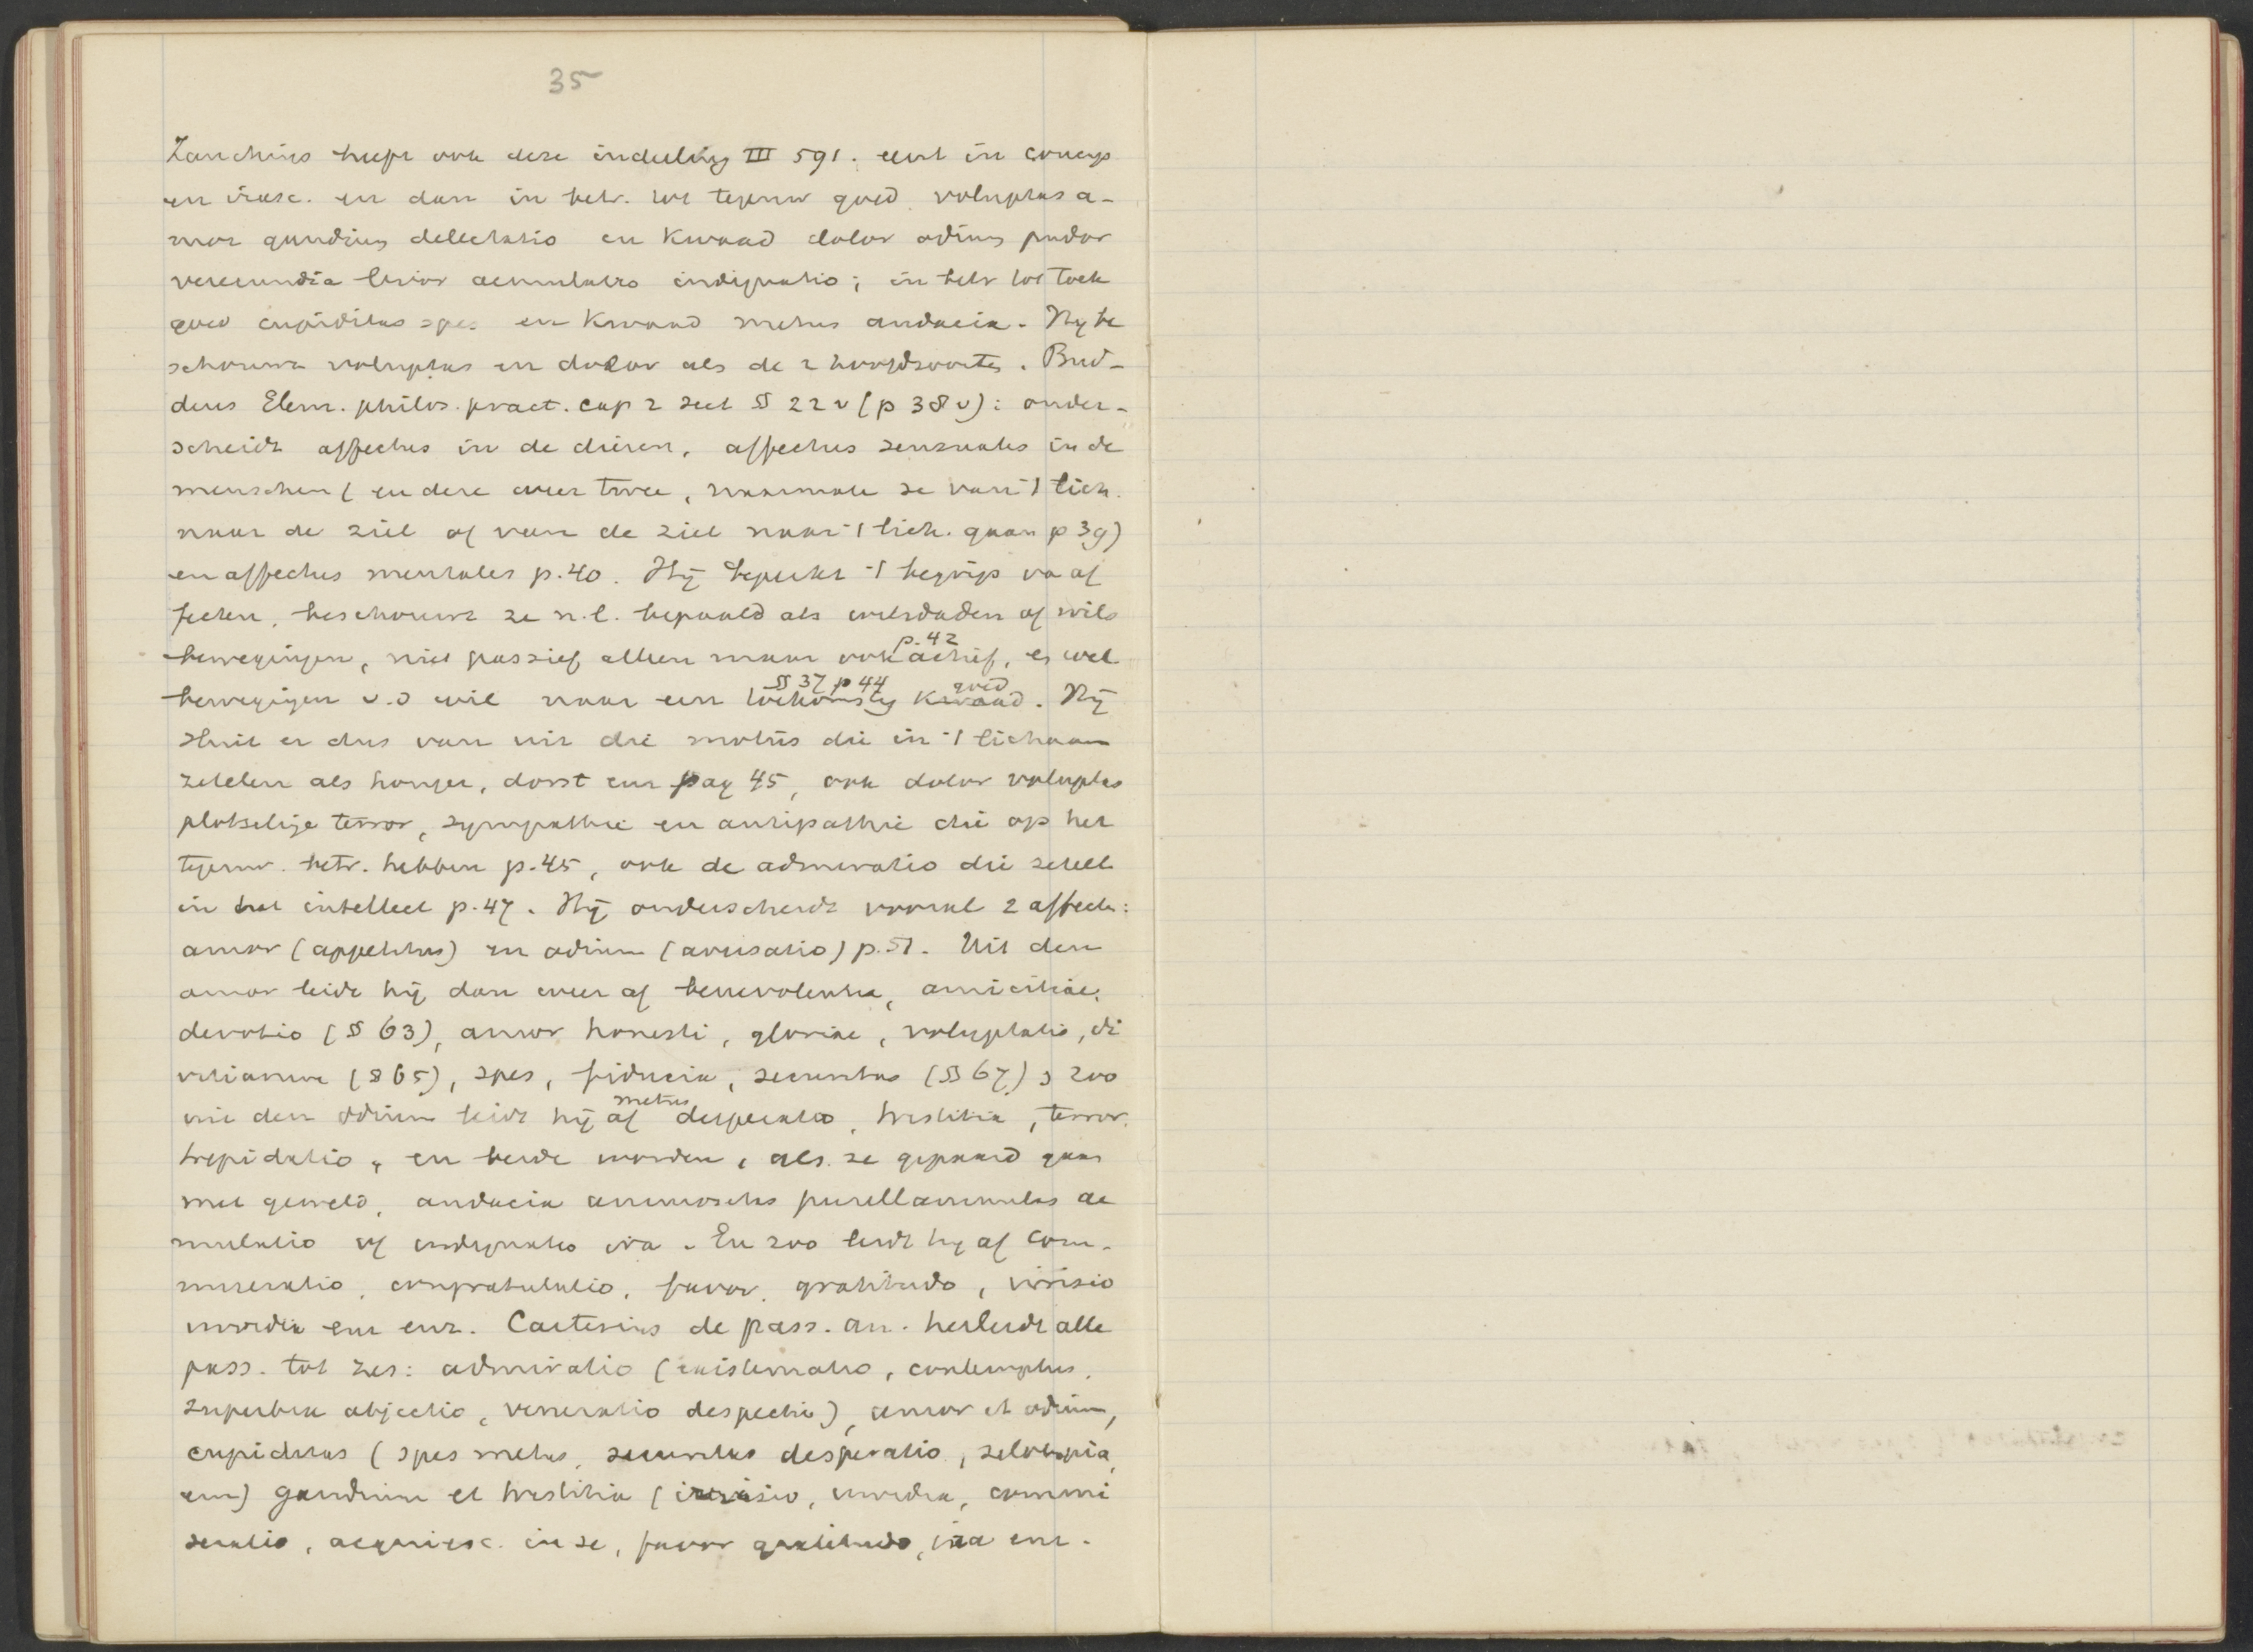 35
Zanchius heeft ook deze indeeling III 591. eerst in concup
en irasc. en dan in betr. tot tegenw goed voluptas a-
mor gaudium delectatio en Kwaad dolor odium pudor
verecundia livor aemulatio indignatio; in betr tot toek
goed cupiditas spes en Kwaad metus audacia. Hij be
schouwt voluptas en dolor als de 2 hoofdsoorten. Bud-
deus Elem. philos. pract. cap 2 sect § 22 v (p 38 v): onder-
scheidt affectus in de dieren, affectus sensuales in de
menschen (en deze weer twee, naarmate ze van 't lich.
naar de ziel of van de ziel naar 't lich. gaan p 39)
en affectus mentales p. 40. Hij beperkt 't begrip van af
fecten, beschouwt ze n.l. bepaald als wilsdaden of wils
bewegingen, niet passief alleen maar ook actief, p. 42 en wel
bewegingen v. d wil naar een toekomstig § 37 p 44 goed Kwaad. Hij
sluit er dus van uit die motus die in 't lichaam
zetelen als honger, dorst enz pag 45, ook dolor voluptas
plotselinge terror, sympathie en antipathie die op het
tegenw. betr. hebben p. 45, ook de admiratio die zetelt
in het intellect p. 47. Hij onderscheidt vooral 2 affecten:
amor (appetitus) en odium (aversatio) p. 51. Uit den
amor leidt hij dan weer af benevolentia, amicitiae,
devotio (§ 63), amor honesti, gloriae, voluptatis, di
vitiarum (§ 65), spes, fiducia, securitas (§ 67) zoo
uit den odium leidt hij af metus desperatio, tristitia, terror,
trepidatio, en beide worden, als ze gepaard gaan
met geweld, audacia animositas pusillanimitas ae
mulatio of indignatio ira. En zoo leidt hij af com-
miseratio, congratulatio, favor, gratitudo, irrisio
invidia enz enz. Cartesius de pass. an. herleidt alle
pass. tot zes: admiratio (existimatio, contemptus,
superbia abjectio, veneratio despectio), amor et odium,
cupiditas (spes metus, securitas desperatio, zelotypia,
enz) gaudium et tristitia (irrisio, invidia, commi
seratio, acquiesc. in se, favor gratitudo, ira enz.